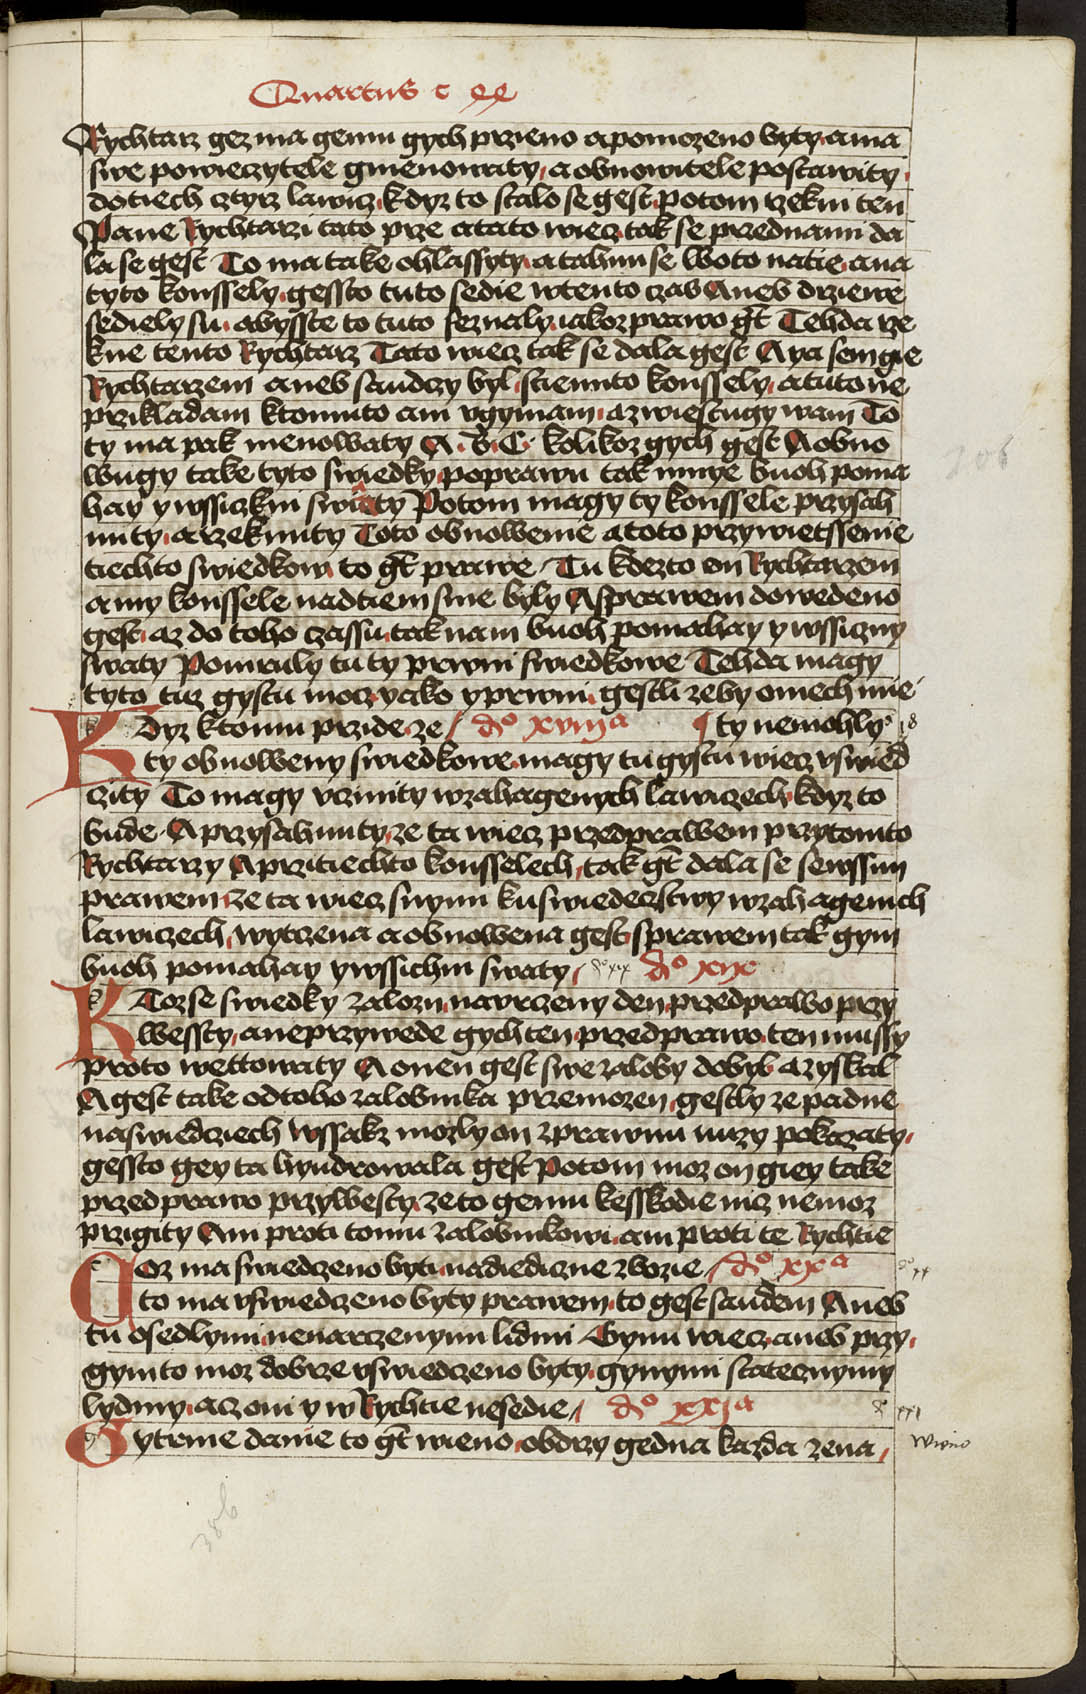 Quartus c xx
Rychtarz gez ma gemu gych przieno a pomozeno byty a ma
swe powierzytele gmenowaty, a obnowitele postawity
do tiech cztyrz lawicz, kdyz to stalo se gest Potom rzekni ten
Pane Rychtarzi tato prze a tato wiecz tak se przed nami da
la se gest To ma take ohlassyty, a tahnu se wo to na tie, a na
tyto konssely, gessto tuto sedie w tento czas Aneb drziewe
sediely su, abysste to tuto seznaly, iakoz prawo gt Tehda rze
kne tento Rychtarz Tato wiecz tak se dala gest A ya sem gie
Rychtarzem aneb saudczy byl, s tiemito konssely, a tuto ne
przikladam k tomuto ani vgymam, az wiestugy wam To
ty ma pak menowaty A. B. C. kolikoz gych gest A obno
wugy take tyto swiedky, po prawu tak mnye buoh poma
hay y wssiczkni swaty Potom magy ty konssele przysah
nuty, a rzeknuty Toto obnowenie a toto przywietssenie
tiechto swiedkow, to gt prawe, Tu kdezto on Rychtarzem
a my konssele nad tiem sme byly A s prawem dowedeno
gest, az do toho czassu, tak nam buoh pomahay y wssiczny
swaty Pomruly tu ty prwni swiedkowe Tehda magy
tyto tuz gystu mocz, yako y prwni, gestli ze by o niech nie
Kdyz k tomu przide, ze / do xviija ty nemohly
ty obnoweny swiedkowe, magy tu gystu wiecz vswied
czity To magy vcziniti w zahagenych lawiczech, kdyz to
bude, A przysahnuty, ze ta wiecz przed prawem przytomto
Rychtarzy A przi tiechto konsselech, tak gt dala se se wssim
prawem, ze ta wiecz s nymi ku swiedecztwy w zahagenich
lawiczech, wytczena a obnowena gest, s prawem tak gym
buoh pomahay y wssichni swaty / do xix do xix
Ktoz se swiedky zalozi, na vrczeny den, przed prawo przy
westy, a neprzywede gych ten przed prawo, ten mussy
proto wettowaty A onen gest swe zaloby dobyl a zyskal
A gest take od toho zalobnika przemozen, gestly ze padne
na swiedcziech Wssakz mozly on z prawnu nuzy pokazaty,
gessto gey ta hyndrowala gest Potom moz on giey take
przed prawo przywesty, ze to gemu k esskodie nicz nemoz
przigity Ani proti tomu zalobnikowi, ani proti te Rychtie
Coz ma swiedczeno byti, na diediczne zbozie / do xxa
to ma vswiedczeno byty prawem, to gest saudem Aneb
tu osedlymi, nenarczenymi lidmi Gynu wiecz, aneb przy,
gynito moz dobrze vswiedczeno byty, gynymi statecznymy
lydmy, acz oni y w Rychtie nesedie / do xxja
Gytrnie danie to gt wieno, obdrzy gedna kazda zena,
18
xx
xxi
wieno
206
386